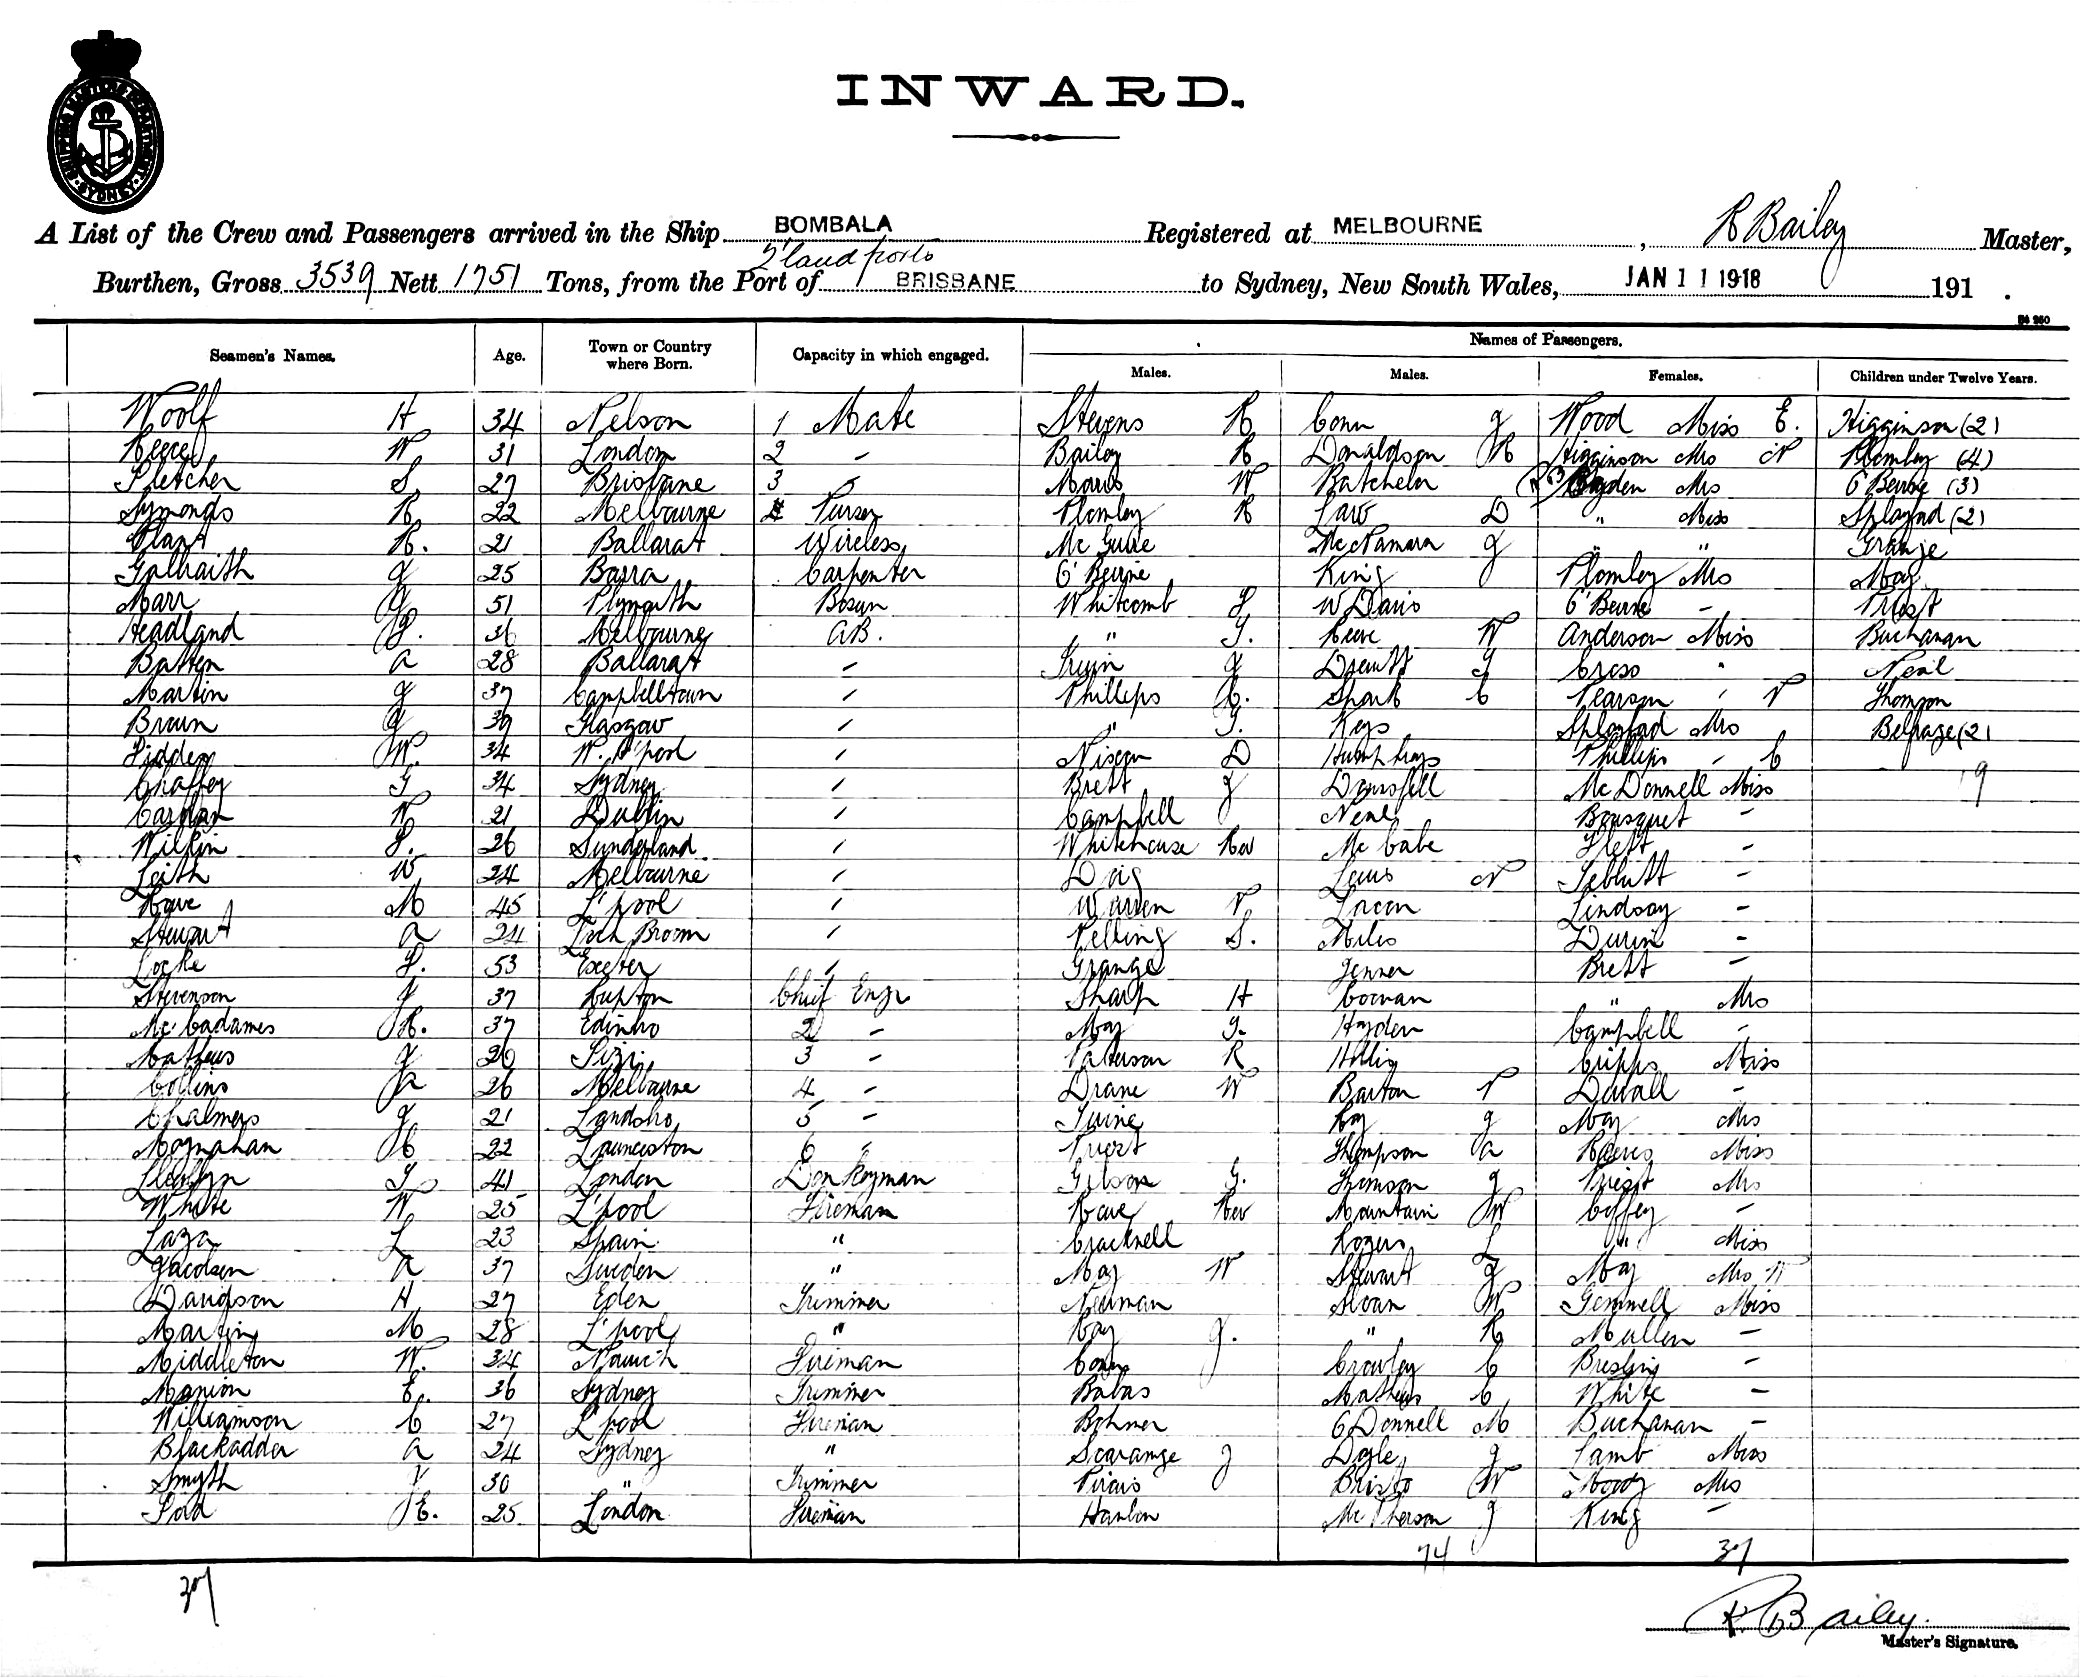 SHIPPING MASTER'S DEPARTMENT · SYDNEY ·
INWARD.
A List of the Crew and Passengers arrived in the Ship BOMBALA Registered at MELBOURNE , R Bailey Master,
Burthen, Gross 3539 Nett 1751 Tons, from the Port of BRISBANE to Sydney, New South Wales, JAN 11 1918 191 .
Seamen's Names. Age. Town or Country where Born. Capacity in which engaged. Names of Passengers.
Males. Males. Females. Children under Twelve Years.
Woolf H 34 Nelson 1 Mate Stevens R Conn J Wood Miss E. Higginson (2)
Reece W 31 London 2 - Bailey R Donaldson R Higginson Mrs N Plomley (4)
Fletcher S 27 Brisbane 3 Morris W Batchelor Mrs O'Beirne (3)
Symonds R 22 Melbourne Purser Plomley R Law D " Miss Splaynd (2)
Clark R. 21 Ballarat Wireless Mc Guire McNamara J " " Grange
Galbraith J 25 Barra Carpenter O'Beirne King Plomley Mrs May
Marr 51 Plymouth Bosun Whitcomb L W Davis O'Beirne - Priest
Headland 36 Melbourne AB. " G. Reeve W Anderson Miss Buchanan
Batten A 28 Ballarat - Irwin J Cross " Neal
Martin J 37 Campbelltown - Phillips C. Spark C Pearson " Thomson
Brown 39 Glasgow - " G. Keys Mrs Belfrage (2)
Lidden W. 34 W. H'pool - Nixon D Humphreys Phillips - C
Chaffey G 34 Sydney - Brett J Mc Donnell Miss 19
21 Dublin - Campbell Neal Bousquet -
Wilkin 26 Sunderland - Whitehouse Rev Mc Cabe Flett -
Leith W 24 Melbourne - Lewis N -
Howe M 45 L'pool - Warren Lindsay -
Stewart A 24 Loch Broom - Pelling S. Miles -
Locke 53 Exeter - Grange Jenner Brett -
Stevenson J 37 Chief Engr Sharp H " Mrs
Mc Cadames R. 37 Edinbro 2 - May G. Hayden Campbell -
Mathews J 3 - Paterson R Cripps Miss
Collins A 26 Melbourne 4 - Drane W Barton Duvall -
Chalmers J 21 5 - Ray J May Mrs
Moynahan 22 Launceston 6 " Priest Thompson A Miss
Llewllyn 41 London Donkeyman Gibson G. Thomson J Priest Mrs
White W 25 L'pool Fireman Rev Mountain W Coffey -
Laza L 23 Spain " Cracknell Rogers L " Miss
Jacobsen A 37 Sweden " May W Stewart J May Mrs W
Davidson H 27 Eden Trimmer Newman Sloan W Gemmell Miss
Martin M 28 L'pool " Ray J. " R Mullen -
Middleton W. 34 Norwich Fireman Crowley C -
Manion E. 36 Sydney Trimmer Babas Mathews C White -
Williamson C 27 L'pool Fireman Bohmer O Donnell M Buchanan -
Blackadder A 24 Sydney " J Doyle J Lamb Miss
Smyth 30 " Trimmer Bristo W Moody Mrs
Ford E. 25 London Fireman Hanlon Mc Pherson J King -
74 37
37
R Bailey.
Master's Signature.